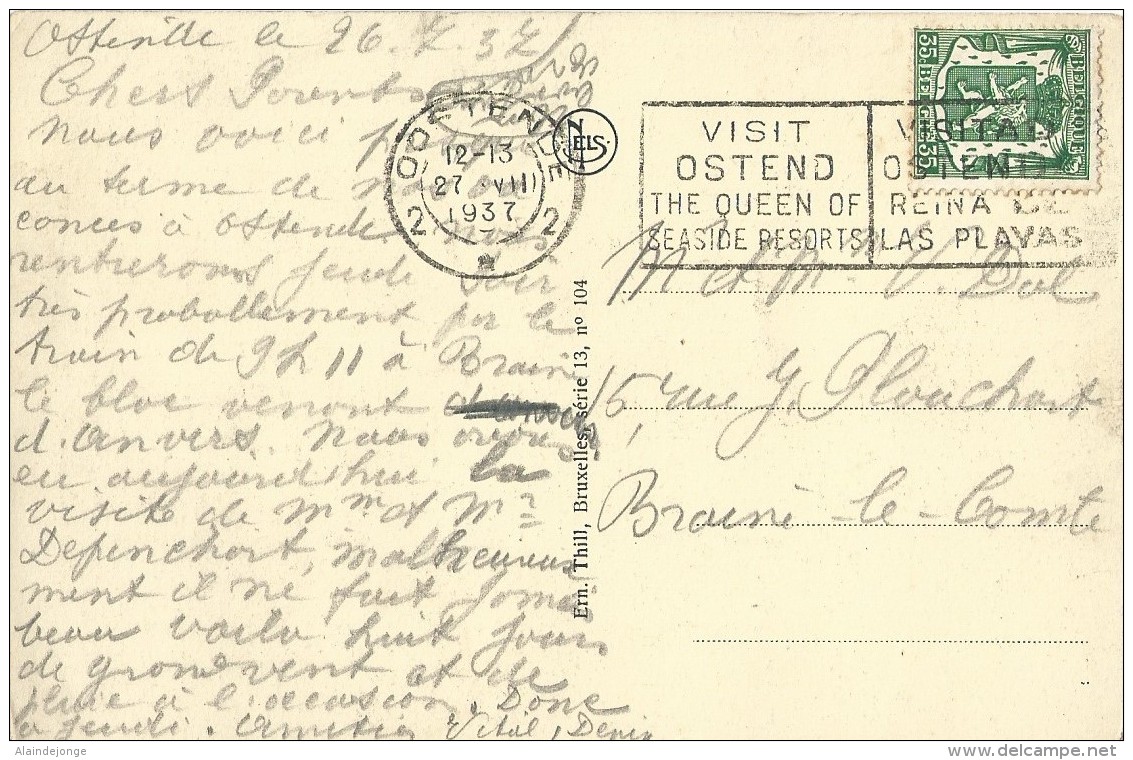 Ostende le 26.7.37
Chers Parents
nous voici presque
au terme de nos va
conces à Ostende. nous
rentrerons jeudi soir
très probablement par le
train de 9h11 à Braine
le bloc venant
d'Anvers. nous avons
eu aujourd'hui la
visite de Mme et Mr
Depinchart, malheureuse
ment il ne fait jamais
beau voila huit jours
de grand vent et de
pluie à l'occasion. Donc
à jeudi. Amitiés Vital, Denis
OOSTENDE
12-13
27 VII
1937
2 2
NELS
VISIT
OSTEND
THE QUEEN OF
SEASIDE RESORTS
VISITAD
OSTENDE
REINA DE
LAS PLAYAS
35c BELGIQUE
BELGIE 35c
M et Mme V. Dul
15, rue J. Plouchart
Braine-le-Comte
Ern. Thill, Bruxelles, série 13, no 104
Alaindejonge
www.delcampe.net